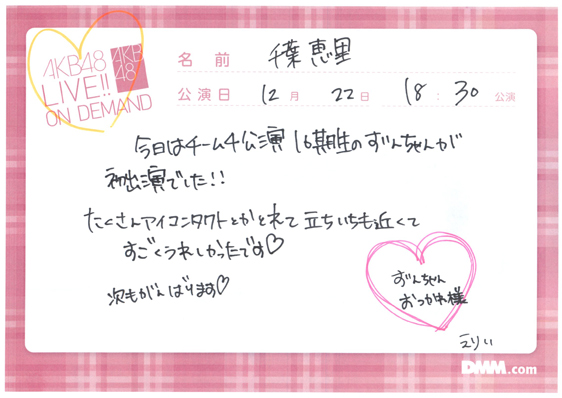 AKB48
LIVE!!
ON DEMAND
AKB
48
名前 千葉恵里
公演日 12月 22日 18:30 公演
今日はチーム4公演 16期生のずんちゃんが
初出演でした!!
たくさんアイコンタクトとかとれて 立ちいちも近くて
すごくうれしかったです♡
次もがんばります♡
ずんちゃん
おつかれ様
えりい
DMM.com